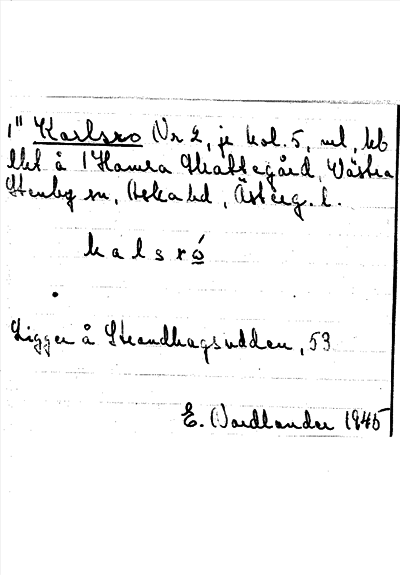 1" Karlsro Nr 2, je kol. 5, ul, kb
lht å 1 Hamra Skattegård, Västra
Stenby sn, Aska hd, Österg. l.
k a l s r ó
Ligger å Strandhagsudden, 53
E. Nordlander 1945